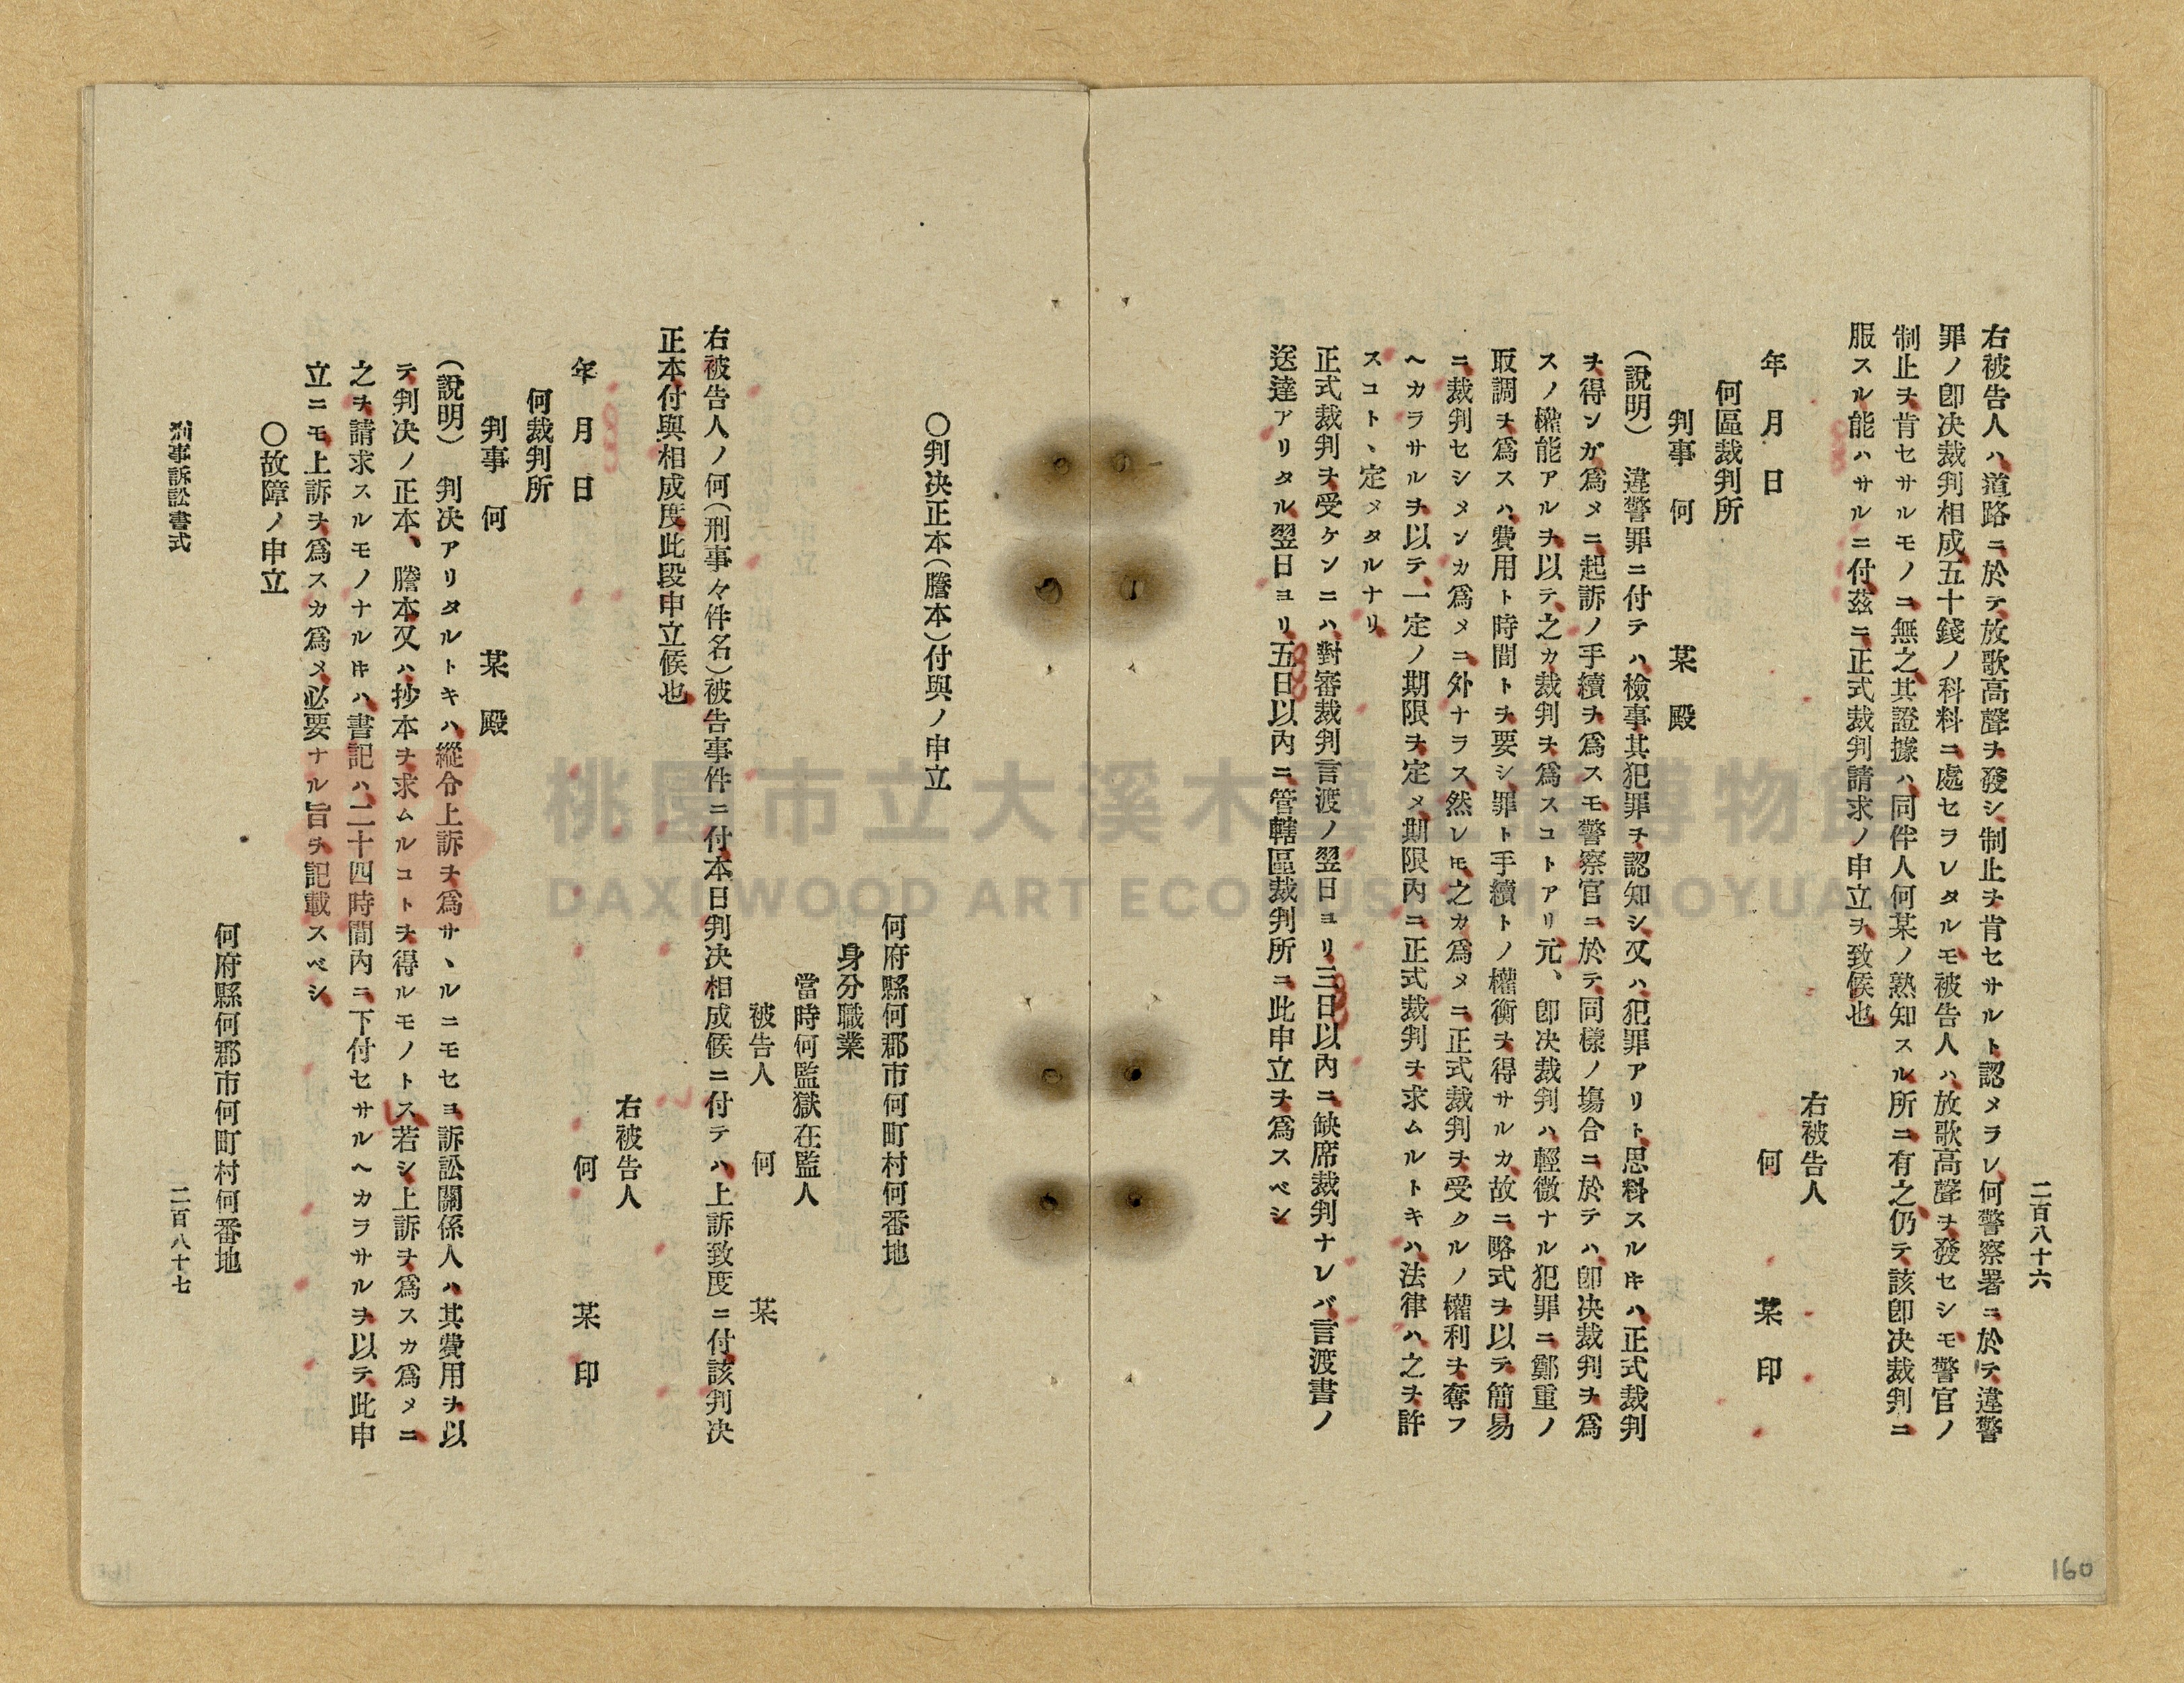 二百八十六
右被告人ハ道路ニ於テ放歌高聲ヲ發シ制止ヲ肯セサルト認メラレ何警察署ニ於テ違警
罪ノ卽决裁判相成五十錢ノ科料ニ處セラレタルモ被告人ハ放歌高聲ヲ發セシモ警官ノ
制止ヲ肯セサルモノニ無之其證據ハ同伴人何某ノ熟知スル所ニ有之仍テ該卽决裁判ニ
服スル能ハサルニ付茲ニ正式裁判請求ノ申立ヲ致候也
右被告人
何 某 印
年 月 日
何區裁判所
判事 何 某 殿
(說明) 違警罪ニ付テハ檢事其犯罪ヲ認知シ又ハ犯罪アリト思料スルキハ正式裁判
ヲ得ンガ爲メニ起訴ノ手續ヲ爲スモ警察官ニ於テ同樣ノ塲合ニ於テハ卽决裁判ヲ爲
スノ權能アルヲ以テ之カ裁判ヲ爲スコトアリ元、卽决裁判ハ輕微ナル犯罪ニ鄭重ノ
取調ヲ爲スハ費用ト時間トヲ要シ罪ト手續トノ權衡ヲ得サルカ故ニ略式ヲ以テ簡易
ニ裁判セシメンカ爲メニ外ナラス然レモ之カ爲メニ正式裁判ヲ受クルノ權利ヲ奪フ
ヘカラサルヲ以テ一定ノ期限ヲ定メ期限內ニ正式裁判ヲ求ムルトキハ法律ハ之ヲ許
スコト、定メタルナリ
正式裁判ヲ受ケンニハ對審裁判言渡ノ翌日ヨリ三日以內ニ缺席裁判ナレバ言渡書ノ
送達アリタル翌日ヨリ五日以內ニ管轄區裁判所ニ此申立ヲ爲スベシ
160
〇判决正本(謄本)付與ノ申立
何府縣何郡市何町村何番地
身分職業
當時何監獄在監人
被告人 何 某
右被告人ノ何(刑事々件名)被告事件ニ付本日判决相成候ニ付テハ上訴致度ニ付該判决
正本付與相成度此段申立候也
右被告人
何 某 印
年 月 日
何裁判所
判事 何 某 殿
(說明) 判决アリタルトキハ縱令上訴ヲ爲サ、ルニモセヨ訴訟關係人ハ其費用ヲ以
テ判决ノ正本、謄本又ハ抄本ヲ求ムルコトヲ得ルモノトス若シ上訴ヲ爲スカ爲メニ
之ヲ請求スルモノナルキハ書記ハ二十四時間內ニ下付セサルヘカラサルヲ以テ此申
立ニモ上訴ヲ爲スカ爲メ必要ナル旨ヲ記載スベシ
〇故障ノ申立
何府縣何郡市何町村何番地
刑事訴訟書式
二百八十七
桃園市立大溪木藝生態博物館
DAXI WOOD ART ECOMUSEUM, TAOYUAN